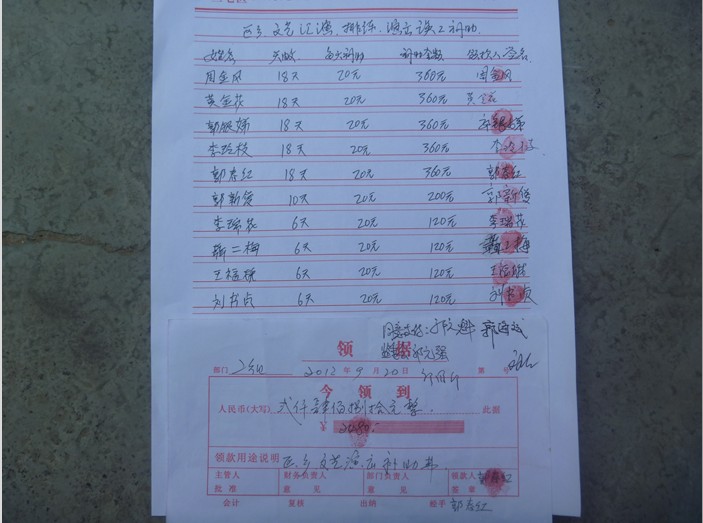 区乡文艺汇演、排练、演出误工补助.
姓名 天数 每天补助 补助金额 领款人签名
周金凤 18天 20元 360元 周金凤
黄金花 18天 20元 360元
18天 20元 360元
李玲枝 18天 20元 360元
郭春红 18天 20元 360元 郭春红
郭新俊 10天 20元 200元 郭新俊
李瑞花 6天 20元 120元 李瑞花
二梅 6天 20元 120元 二梅
王 6天 20元 120元 王
刘书贞 6天 20元 120元 刘书贞
同意支付:
领 据
部门 2012年9月20日 第 号
今领到
人民币(大写) 贰仟零佰捌拾元整. 此据
¥ 2080.-
领款用途说明 区乡文艺演出补助款
主管人批准 财务负责人意见 部门负责人意见 领款人签章 郭春红
会计 复核 出纳 经手 郭春红